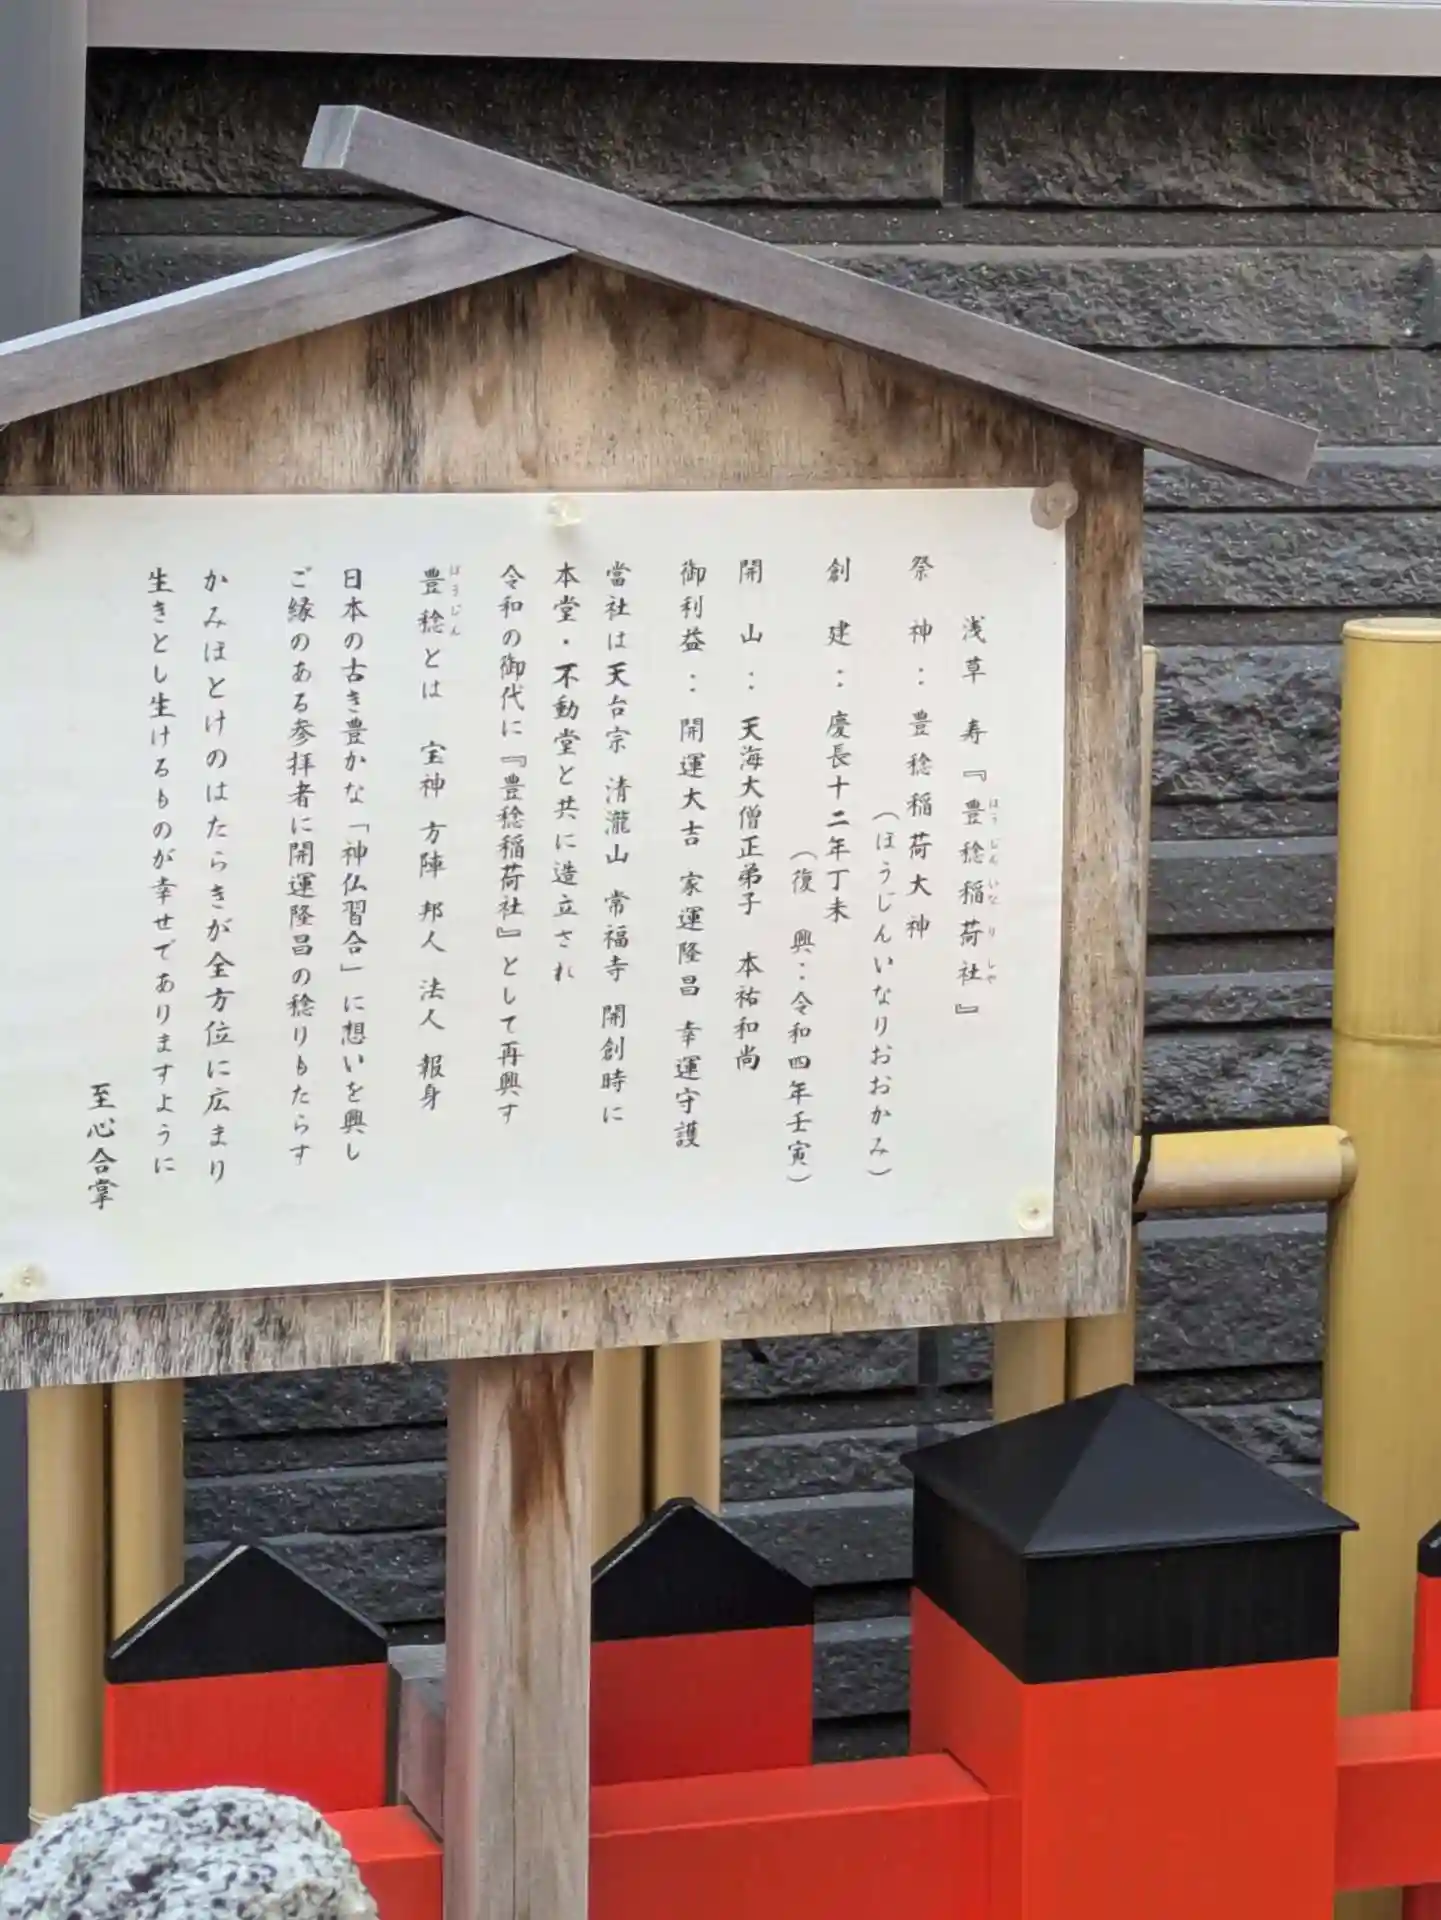 浅草　寿『豊稔稲荷社』
ほうじんいなりしゃ
祭　神：豊稔稲荷大神
（ほうじんいなりおおかみ）
創　建：慶長十二年丁未
（復　興：令和四年壬寅）
開　山：天海大僧正弟子　本祐和尚
御利益：開運大吉　家運隆昌　幸運守護
當社は天台宗　清瀧山　常福寺　開創時に
本堂・不動堂と共に造立され
令和の御代に『豊稔稲荷社』として再興す
ほうじん
豊稔とは　宝神　方陣　邦人　法人　報身
日本の古き豊かな「神仏習合」に想いを興し
ご縁のある参拝者に開運隆昌の稔りもたらす
かみほとけのはたらきが全方位に広まり
生きとし生けるものが幸せでありますように
至心合掌